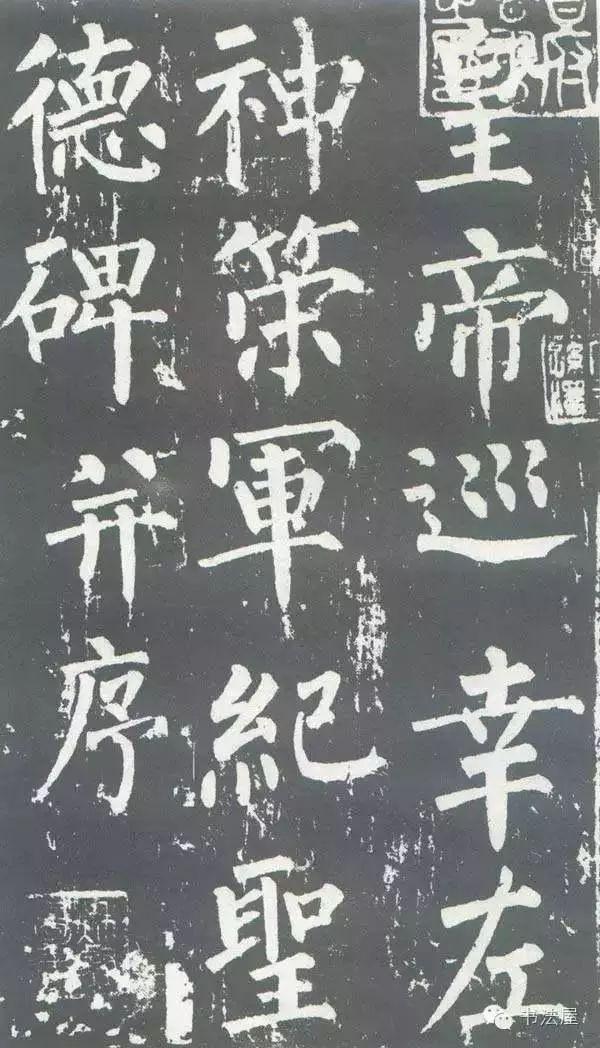 皇帝巡幸左
神策軍紀聖
德碑并序
书法屋